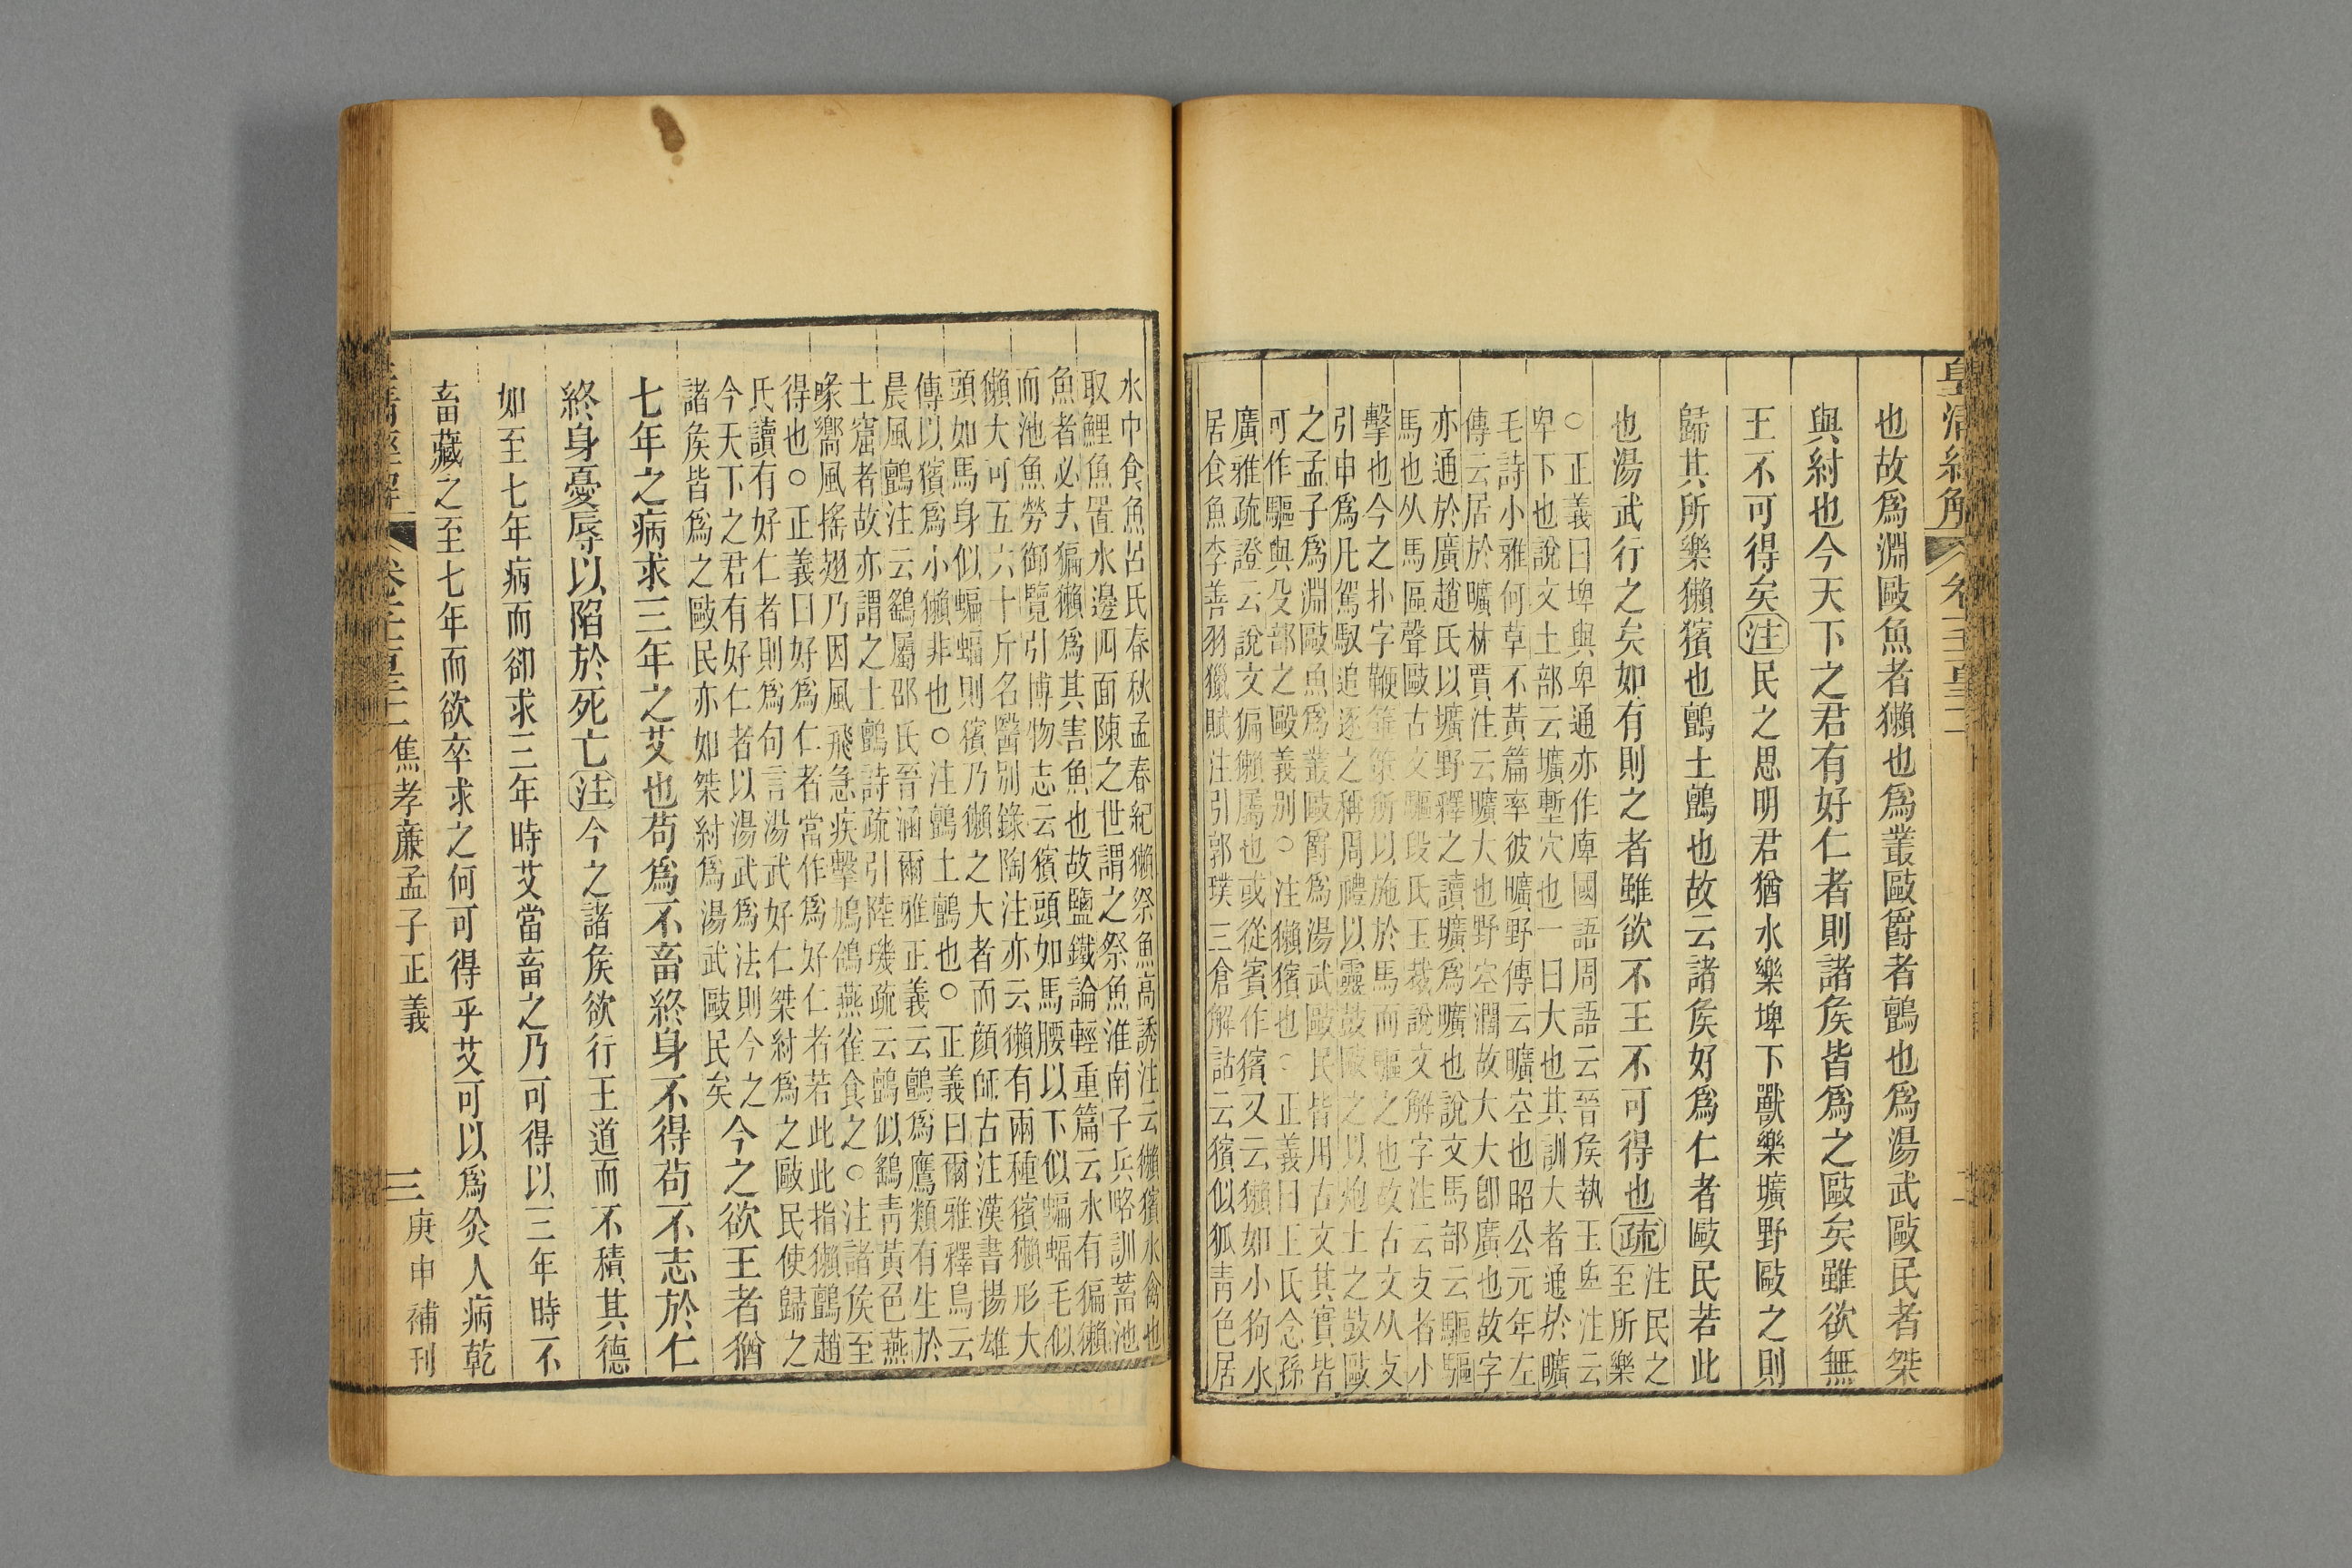 皇清經解
也故爲淵歐魚者獺也爲叢歐爵者鸇也爲湯武歐民者桀
與紂也今天下之君有好仁者則諸矦皆爲之歐矣雖欲無
王不可得矣注民之思明君猶水樂埤下獸樂壙野歐之則
歸其所樂獺獱也鸇土鸇也故云諸矦好爲仁者歐民若此
也湯武行之矣如有則之者雖欲不王不可得也疏注民之
至所樂
○正義曰埤與卑通亦作庳國語周語云晉矦執玉卑注云
卑下也說文土部云壙塹穴也一曰大也其訓大者通於曠
毛詩小雅何草不黃篇率彼曠野傳云曠空也昭公元年左
傳云居於曠林賈注云曠大也野空濶故大大卽廣也故字
亦通於廣趙氏以壙野釋之讀壙爲曠也說文馬部云驅驅
馬也从馬區聲歐古文驅段氏玉裁說文解字注云攴者小
擊也今之扑字鞭箠策所以施於馬而驅之也故古文从攴
引申爲凡駕馭追逐之稱周禮以靈鼓歐之以炮土之鼓歐
之孟子爲淵歐魚爲叢歐爵爲湯武歐民皆用古文其實皆
可作驅與殳部之毆義別○注獺獱也○正義曰王氏念孫
廣雅疏證云說文猵獺屬也或從賓作獱又云獺如小狗水
居食魚李善羽獵賦注引郭璞三倉解詁云獱似狐靑色居
水中食魚呂氏春秋孟春紀獺祭魚高誘注云獺獱水禽也
取鯉魚置水邊四面陳之世謂之祭魚淮南子兵略訓蓄池
魚者必去猵獺爲其害魚也故鹽鐵論輕重篇云水有猵獺
而池魚勞御覽引博物志云獱頭如馬腰以下似蝙蝠毛似
獺大可五六十斤名醫別錄陶注亦云獺有兩種獱獺形大
頭如馬身似蝙蝠則獱乃獺之大者而顏師古注漢書揚雄
傳以獱爲小獺非也○注鸇土鸇也○正義曰爾雅釋鳥云
晨風鸇注云鷂屬邵氏晉涵爾雅正義云鸇爲鷹類有生於
土窟者故亦謂之土鸇詩疏引陸璣疏云鸇似鷂靑黃色燕
喙嚮風搖翅乃因風飛急疾擊鳩鴿燕雀食之○注諸矦至
得也○正義曰好爲仁者當作爲好仁者若此此指獺鸇趙
氏讀有好仁者則爲句言湯武好仁桀紂爲之歐民使歸之
今天下之君有好仁者以湯武爲法則今之
諸矦皆爲之歐民亦如桀紂爲湯武歐民矣今之欲王者猶
七年之病求三年之艾也苟爲不畜終身不得苟不志於仁
終身憂辱以陷於死亡注今之諸矦欲行王道而不積其德
如至七年病而卻求三年時艾當畜之乃可得以三年時不
畜藏之至七年而欲卒求之何可得乎艾可以爲灸人病乾
焦孝廉孟子正義 三 庚申補刊